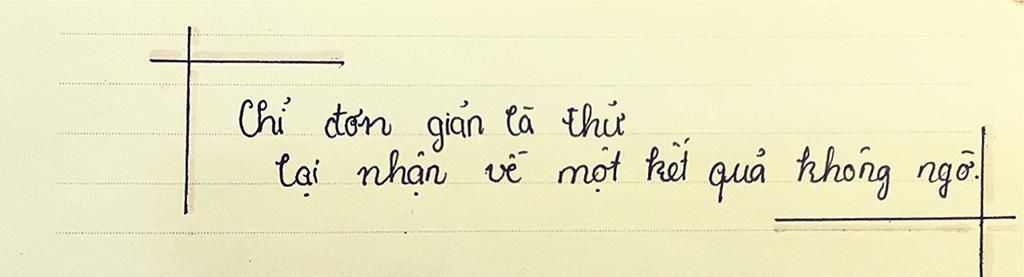 Chỉ đơn giản là thử
lại nhận về một kết quả không ngờ.